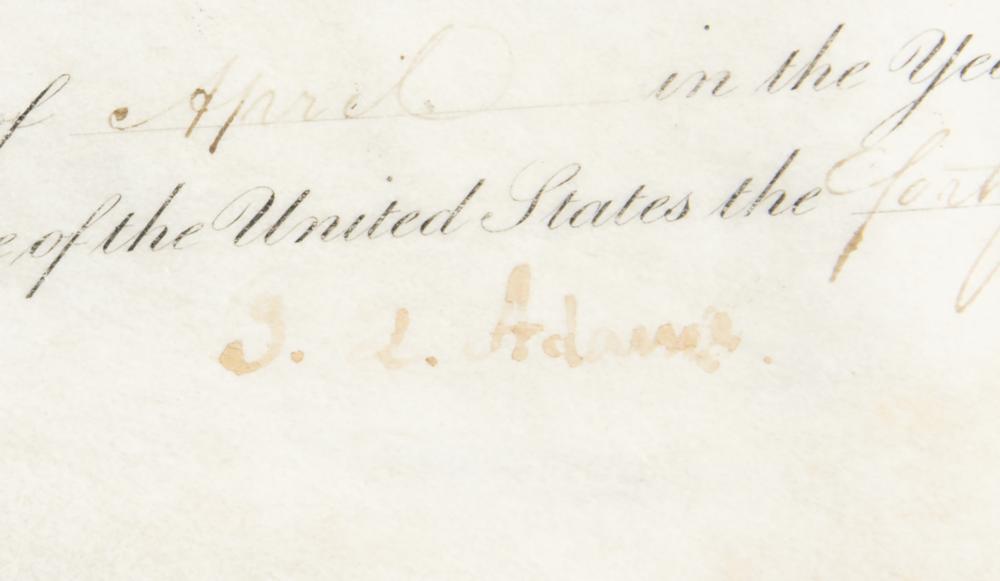 of April in the Yea
e of the United States the fort
J. Q. Adams.